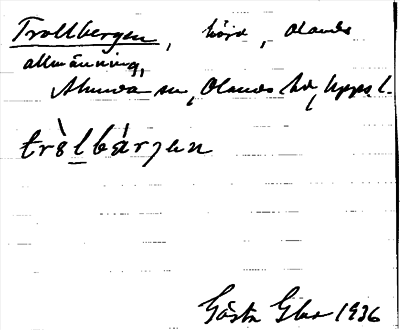 Trollbergen, höjd, Olands
allmänning,
Alunda sn, Olands hd, Upps l.
tròlbárjen
Gösta Glas 1936